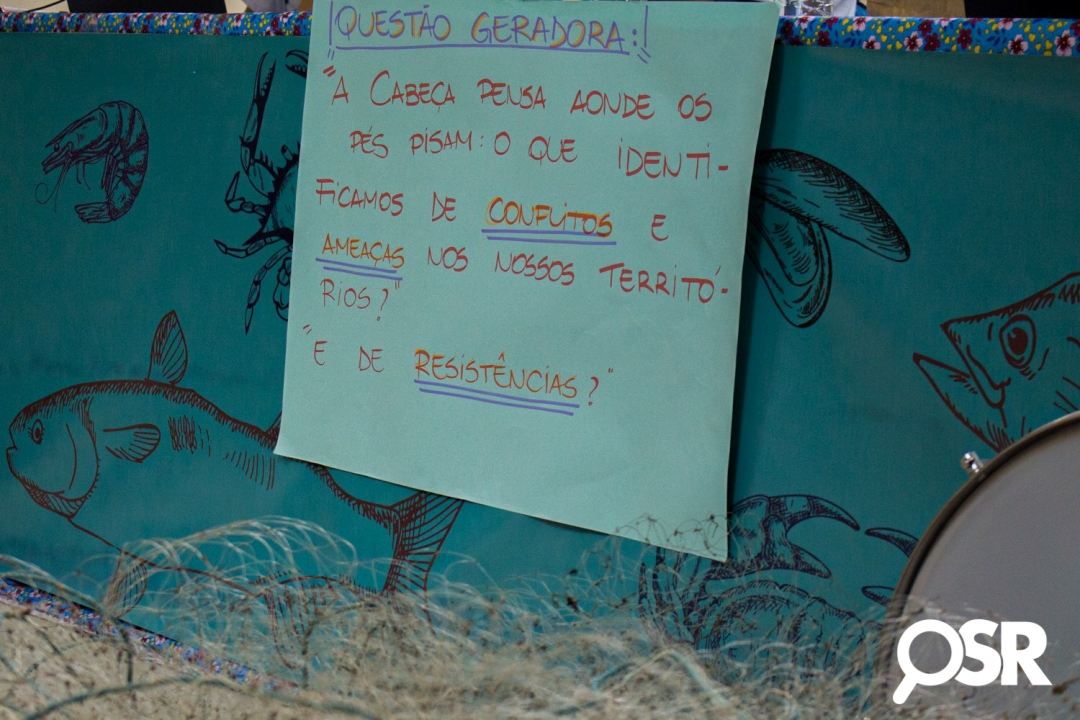 QUESTÃO GERADORA:
"A CABEÇA PENSA AONDE OS
PÉS PISAM: O QUE IDENTI-
FICAMOS DE CONFLITOS E
AMEAÇAS NOS NOSSOS TERRITÓ-
RIOS?"
"E DE RESISTÊNCIAS?"
OSR